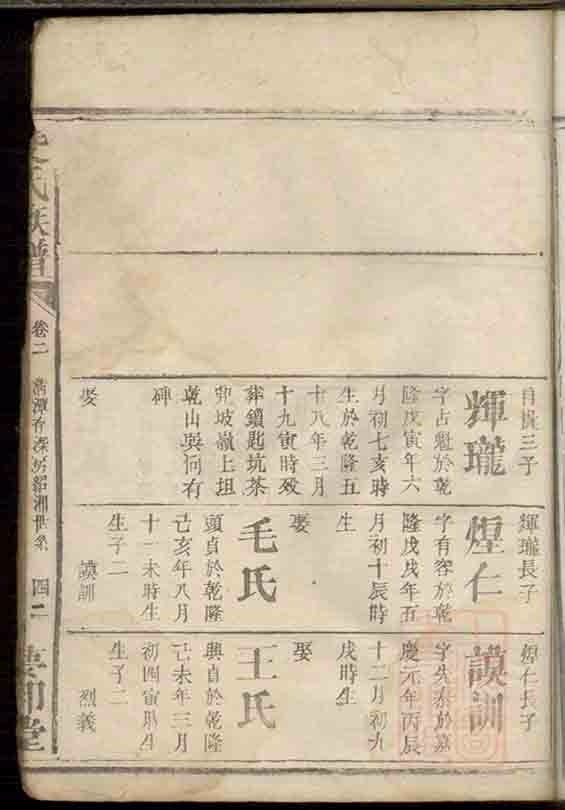 三子
輝瓏
字占魁於乾
隆戊寅年六
月初七亥時
生於乾隆五
十八年三月
十九寅時歿
葬鎖匙坑茶
坡嶺上坦
乾山巽向有
碑
娶
輝瓏長子
煌仁
字有容於乾
隆戊戌年五
月初十辰時
生
娶
毛氏
頭貞於乾隆
己亥年八月
十一未時生
生子二
謨訓
煌仁長子
謨訓
字失泰於嘉
慶元年丙辰
十二月初九
戌時生
娶
王氏
興貞於乾隆
己未年三月
初四寅時生
生子二
烈義
氏族譜
卷二
四二
堂